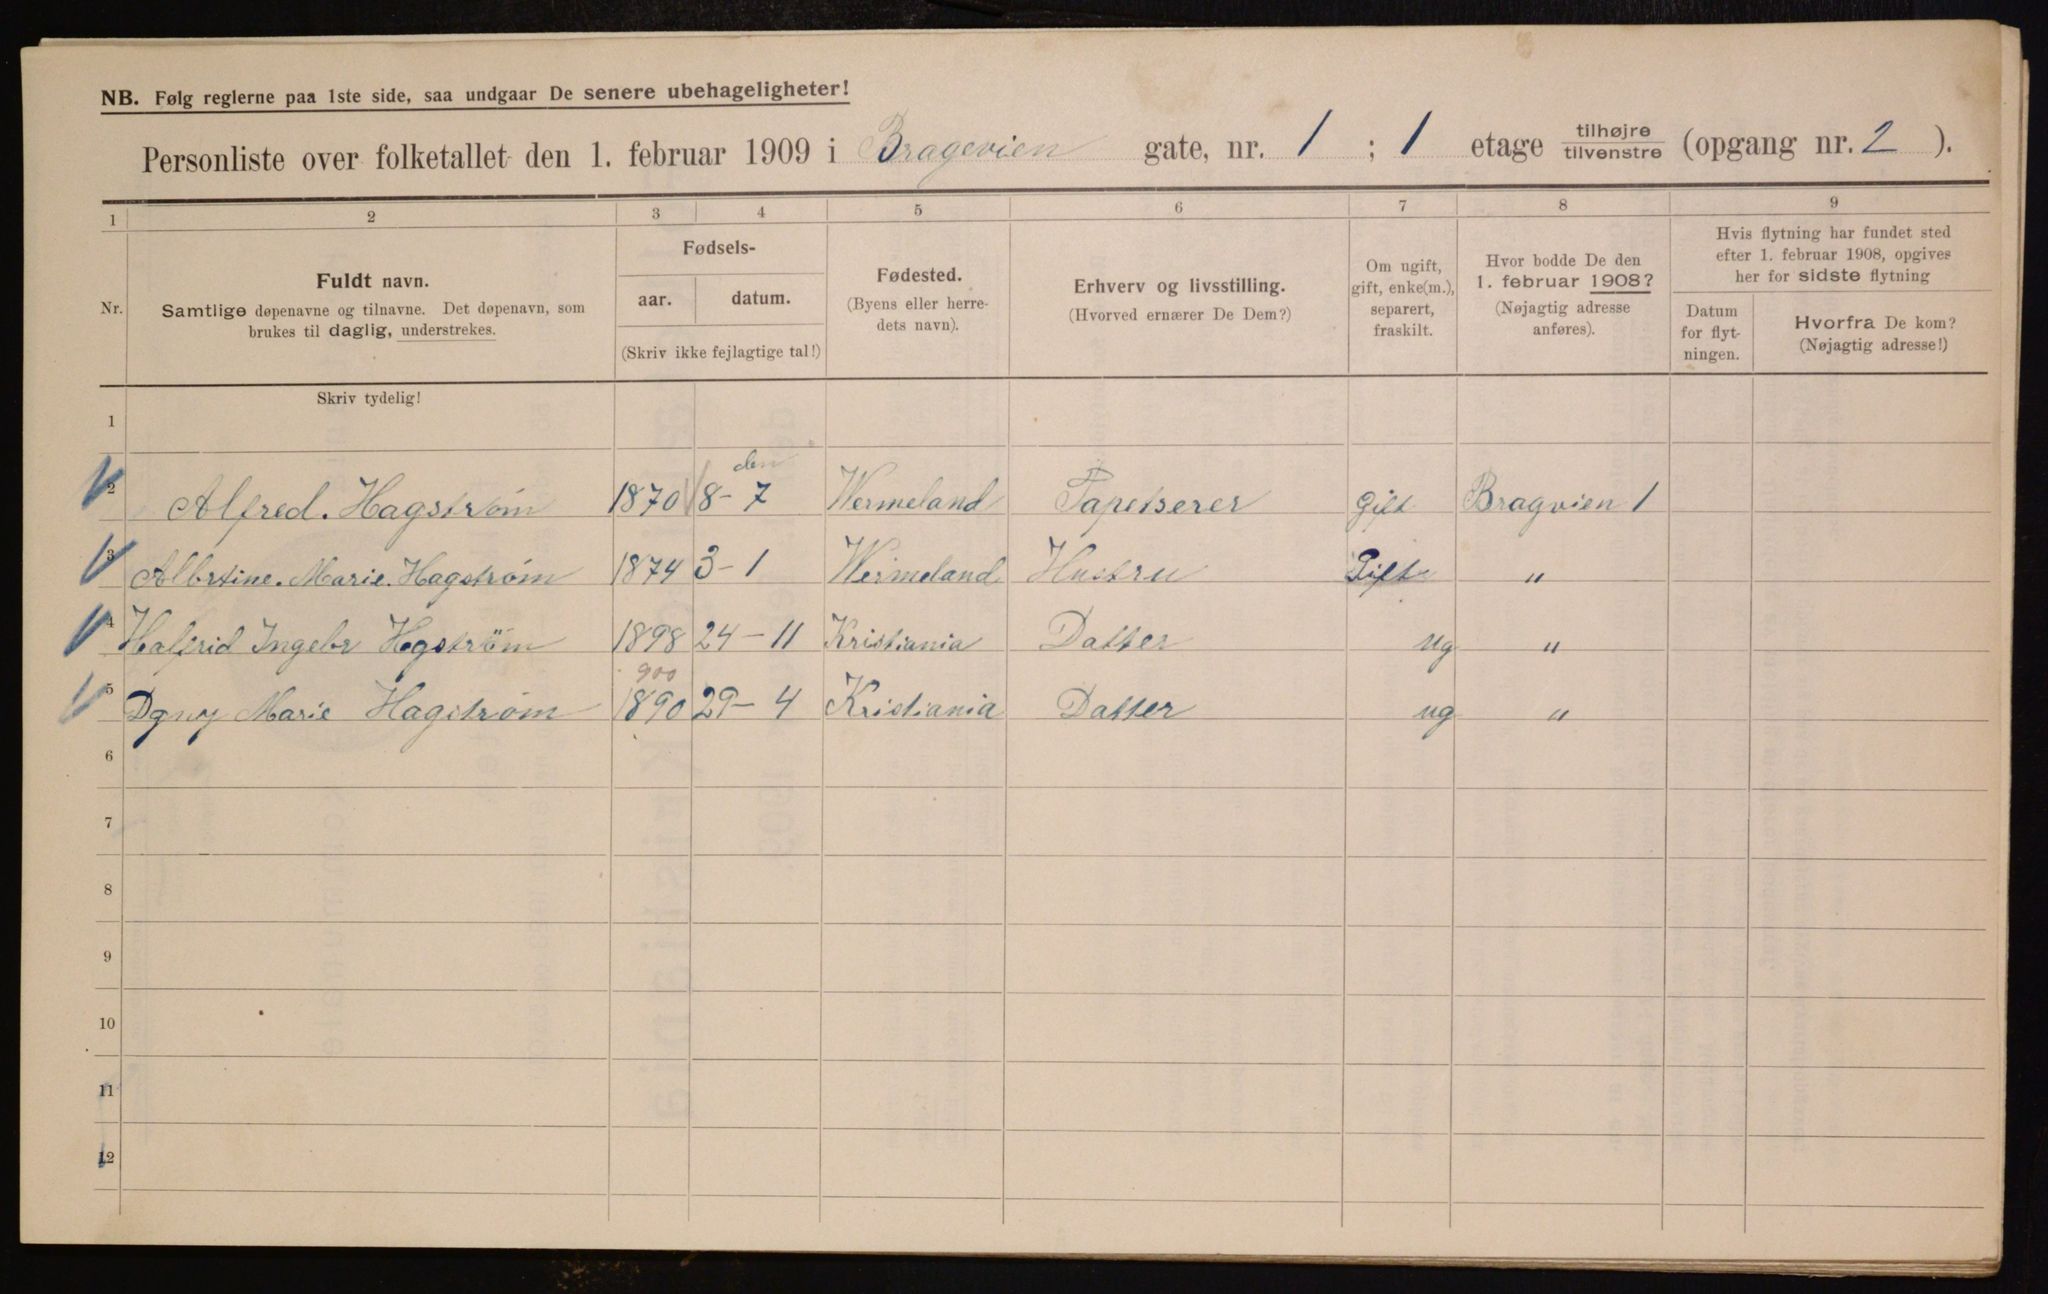 NB. Følg reglerne paa 1ste side, saa undgaar De senere ubehageligheter!
Personliste over folketallet den 1. februar 1909 i Bragevien gate, nr. 1 ; 1 etage tilhøjre/tilvenstre (opgang nr. 2 ).
1 2 3 4 5 6 7 8 9
Nr.
Fuldt navn.
Samtlige døpenavne og tilnavne. Det døpenavn, som
brukes til daglig, understrekes.
Fødsels-
aar. datum.
(Skriv ikke fejlagtige tal!)
Fødested.
(Byens eller herre-
dets navn).
Erhverv og livsstilling.
(Hvorved ernærer De Dem?)
Om ugift,
gift, enke(m.),
separert,
fraskilt.
Hvor bodde De den
1. februar 1908?
(Nøjagtig adresse
anføres).
Hvis flytning har fundet sted
efter 1. februar 1908, opgives
her for sidste flytning
Datum
for flyt-
ningen.
Hvorfra De kom?
(Nøjagtig adresse!)
Skriv tydelig!
1
den
2 Alfred. Hagstrøm 1870 8-7 Wermeland Tapetserer Gift Bragvien 1
3 Albrtine. Marie. Hagstrøm 1874 3-1 Wermeland Hustru Gift "
4 Halfrid Ingebr Hgstrøm 1898 24-11 Kristiania Datter ug "
900
5 Dgny Marie Hagstrøm 1890 29-4 Kristiania Datter ug "
6
7
8
9
10
11
12